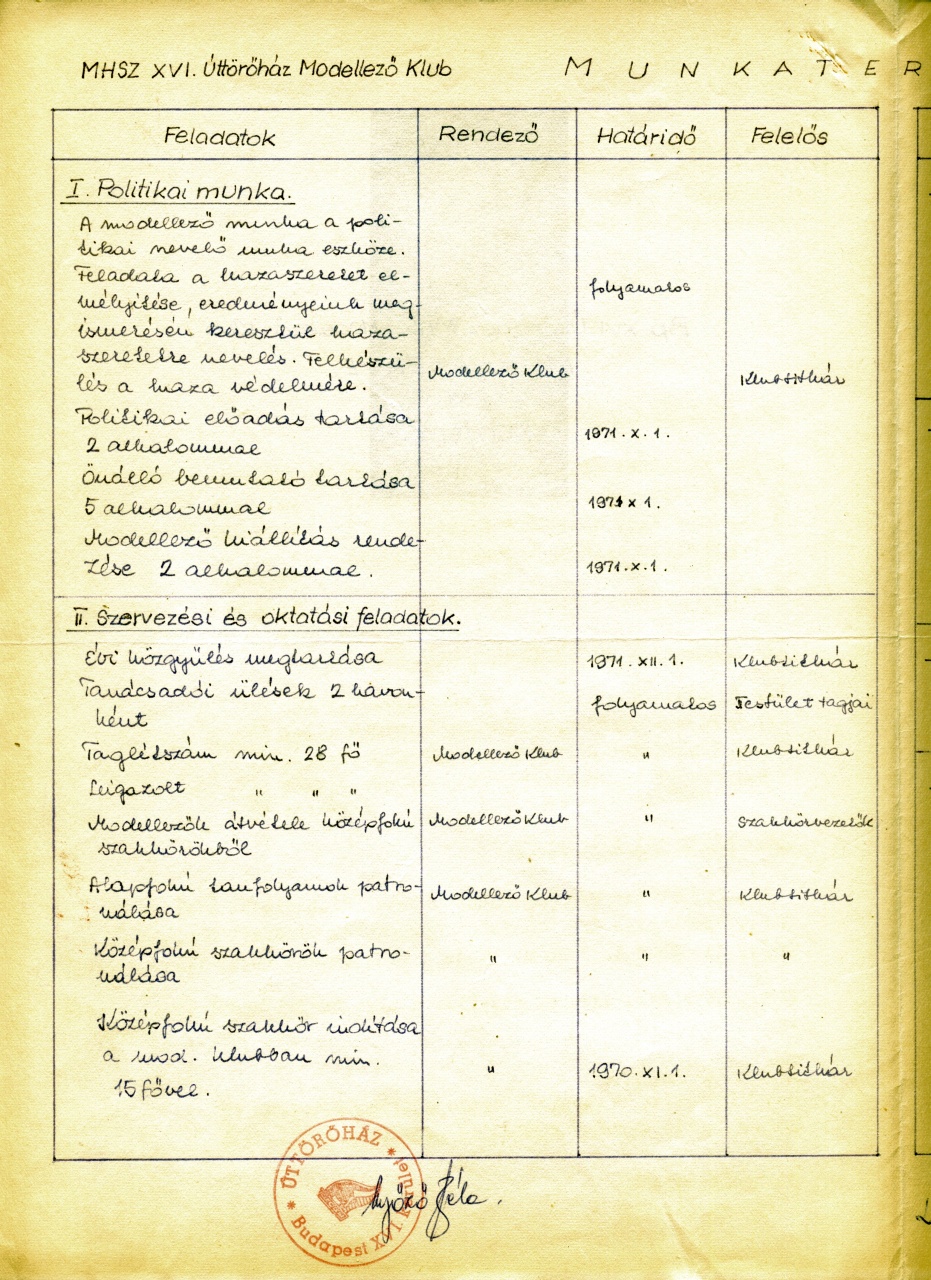 MHSZ XVI. Úttörőház Modellező Klub
MUNKATER
Feladatok Rendező Határidő Felelős
I. Politikai munka.
A modellező munka a poli-
tikai nevelő munka eszköze.
Feladata a hazaszeretet el-
mélyítése, eredményeink meg- folyamatos
ismerésén keresztül haza-
szeretetre nevelés. Felkészü-
lés a haza védelmére. Modellező Klub Klubtitkár
Politikai előadás tartása
2 alkalommal 1971. X. 1.
Önálló bemutató tartása
5 alkalommal 1971 X 1.
Modellező kiállítás rende-
zése 2 alkalommal. 1971. X. 1.
II. Szervezési és oktatási feladatok.
Évi közgyülés megtartása 1971. XII. 1. Klubtitkár
Tanácsadói ülések 2 havon- folyamatos Testület tagjai
ként
Taglétszám min. 28 fő Modellező Klub " Klubtitkár
Leigazolt " " "
Modellezők átvétele középfokú Modellező Klub " Szakkörvezetők
szakkörökből
Alapfokú tanfolyamok patro- Modellező Klub " Klubtitkár
nálása
Középfokú szakkörök patro- " " "
nálása
Középfokú szakkör indítása
a mod. klubban min. " 1970. XI. 1. Klubtitkár
15 fővel.
ÚTTÖRŐHÁZ
Budapest XVI. kerület
Győző Béla.